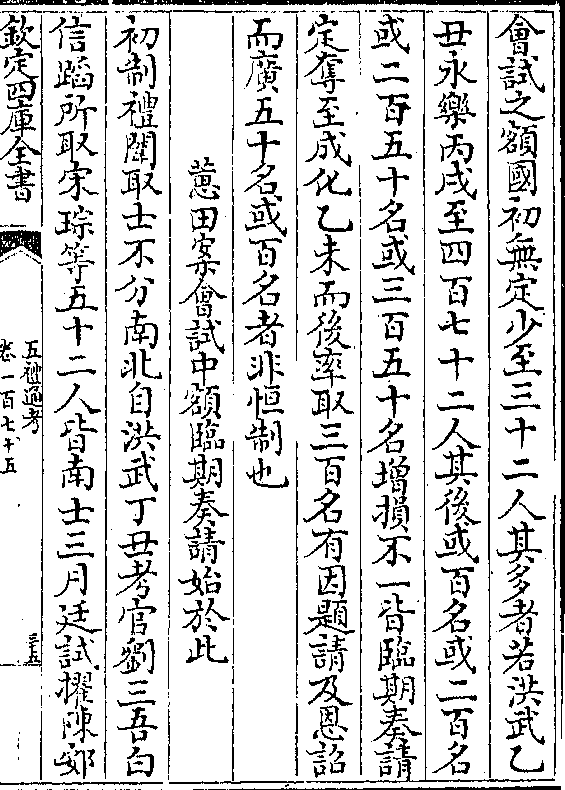 會試之額國初無定少至三十二人其多者若洪武乙
丑永樂丙戌至四百七十二人其後或百名或二百名
或二百五十名或三百五十名增損不一皆臨期奏請
定奪至成化乙未而後率取三百名有因題請及恩詔
而廣五十名或百名者非恒制也
蕙田案會試中額臨期奏請始於此
初制禮闈取士不分南北自洪武丁丑考官劉三吾白
信蹈所取宋琮等五十二人皆南士三月廷試擢陳䢿
欽定四庫全書
五禮通考
卷一百七十五
三五